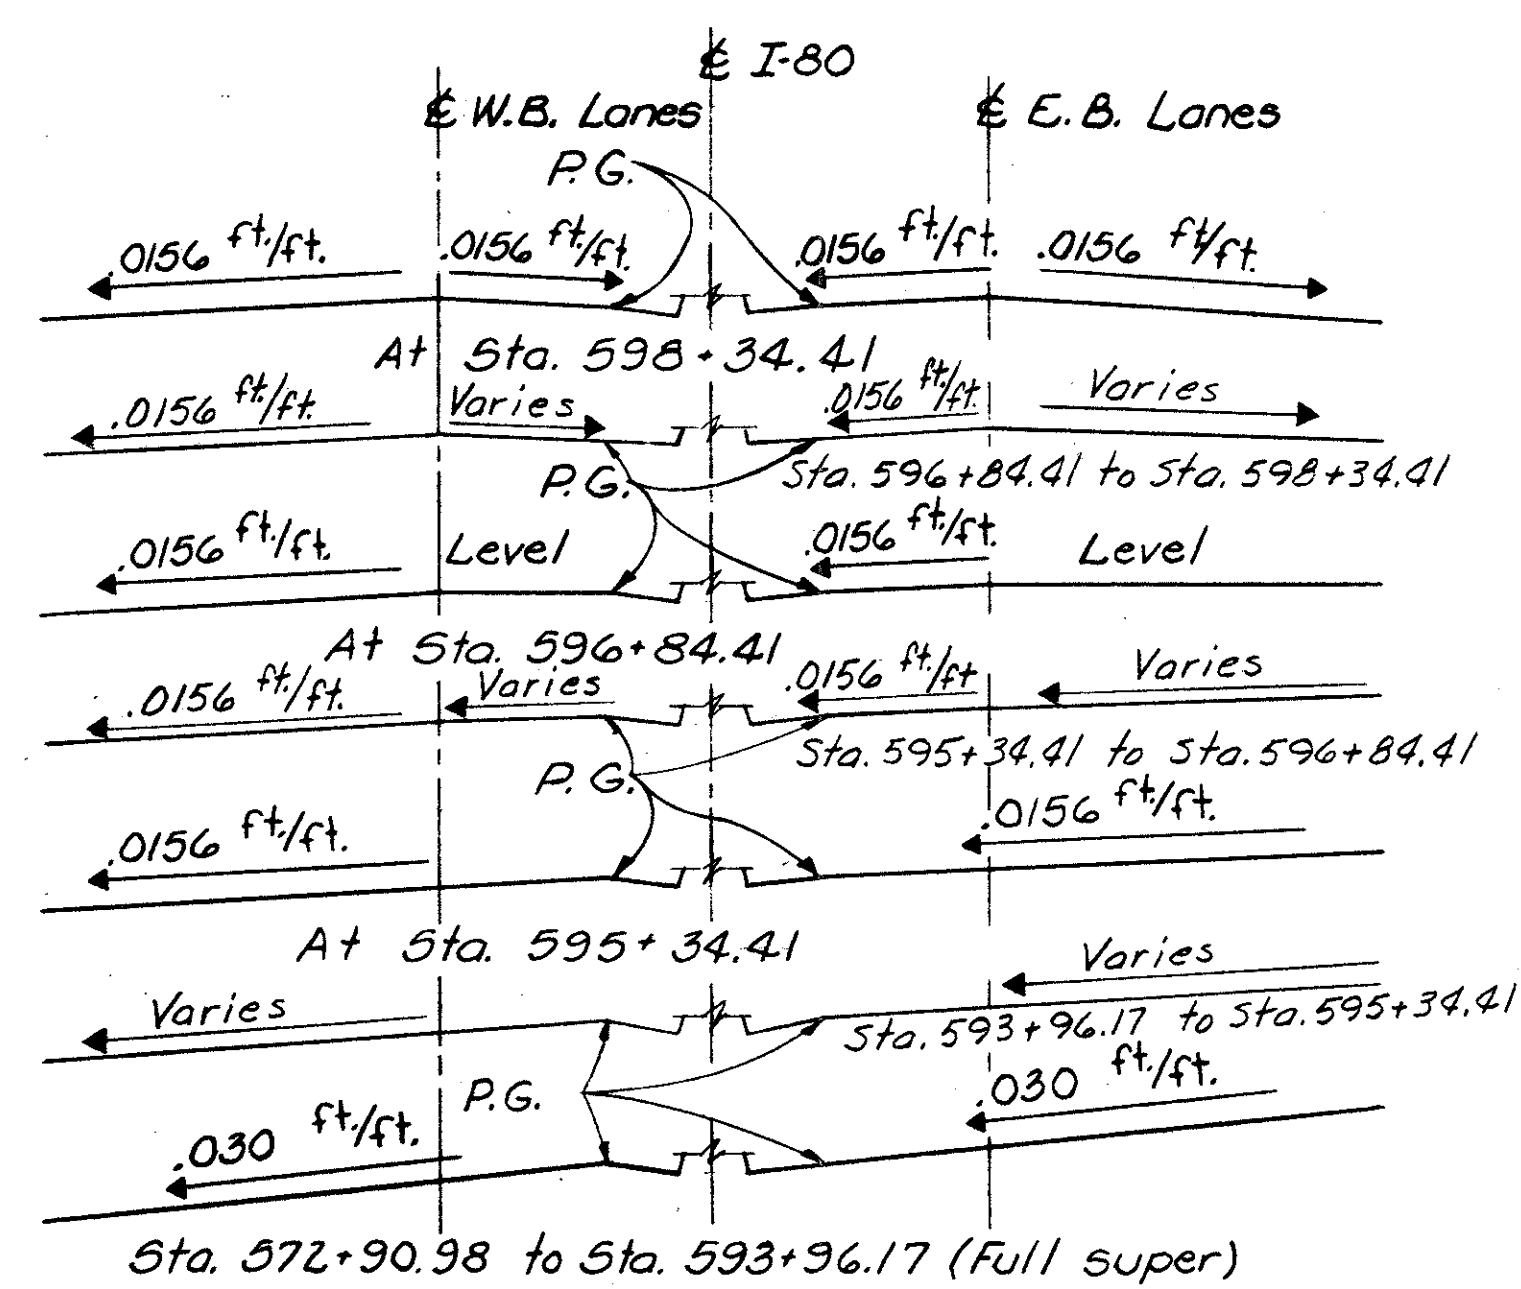 ℄ I-80
℄ W.B. Lanes ℄ E.B. Lanes
P.G.
.0156 ft./ft. .0156 ft./ft. .0156 ft./ft. .0156 ft./ft.
At Sta. 598+34.41
.0156 ft./ft. Varies .0156 ft./ft. Varies
P.G. Sta. 596+84.41 to Sta. 598+34.41
.0156 ft./ft. Level .0156 ft./ft. Level
At Sta. 596+84.41
.0156 ft./ft. Varies .0156 ft./ft Varies
Sta. 595+34.41 to Sta. 596+84.41
P.G.
.0156 ft./ft. .0156 ft./ft.
At Sta. 595+34.41
Varies Varies
Sta. 593+96.17 to Sta. 595+34.41
P.G.
.030 ft./ft. .030 ft./ft.
Sta. 572+90.98 to Sta. 593+96.17 (Full super)